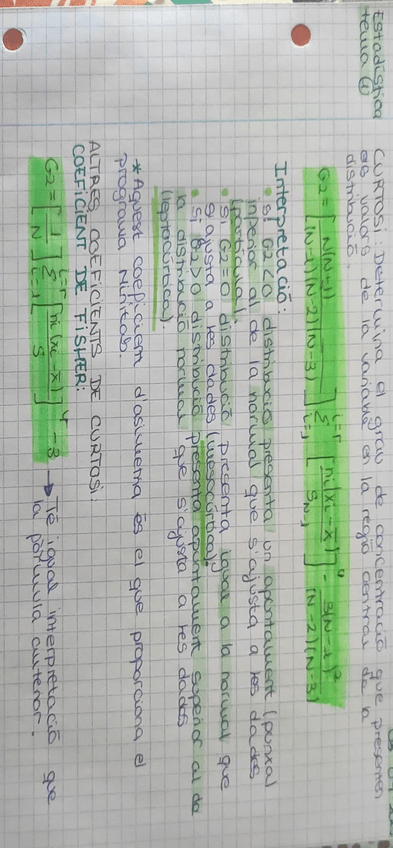 Estadística
tema (4)
CURTOSI: Determina el grau de concentració que presenten
els valors de la variable en la regió central de la
distribució.
G2 = [N(N+1) / (N-1)(N-2)(N-3)] Σ i=1 i=r [ni(xi - x̄) / SN-1]⁴ - 3(N-1)² / (N-2)(N-3)
Interpretació:
• Si G2<0 distribució presenta un apuntament (punxa)
inferior al de la normal que s'ajusta a les dades
(platicúrtica)
• Si G2=0 distribució presenta igual a la normal que
s'ajusta a les dades (mesocúrtica).
• Si G2>0 distribució presenta apuntament superior al de
la distribució normal que s'ajusta a les dades
(leptocúrtica)
*Aquest coeficient d'asimetria és el que proporciona el
programa Minitab.
ALTRES COEFICIENTS DE CURTOSI:
COEFICIENT DE FISHER:
G2 = [1/N] Σ i=1 i=r [ni(xi - x̄) / S]⁴ - 3 → Té igual interpretació que
la fórmula anterior.